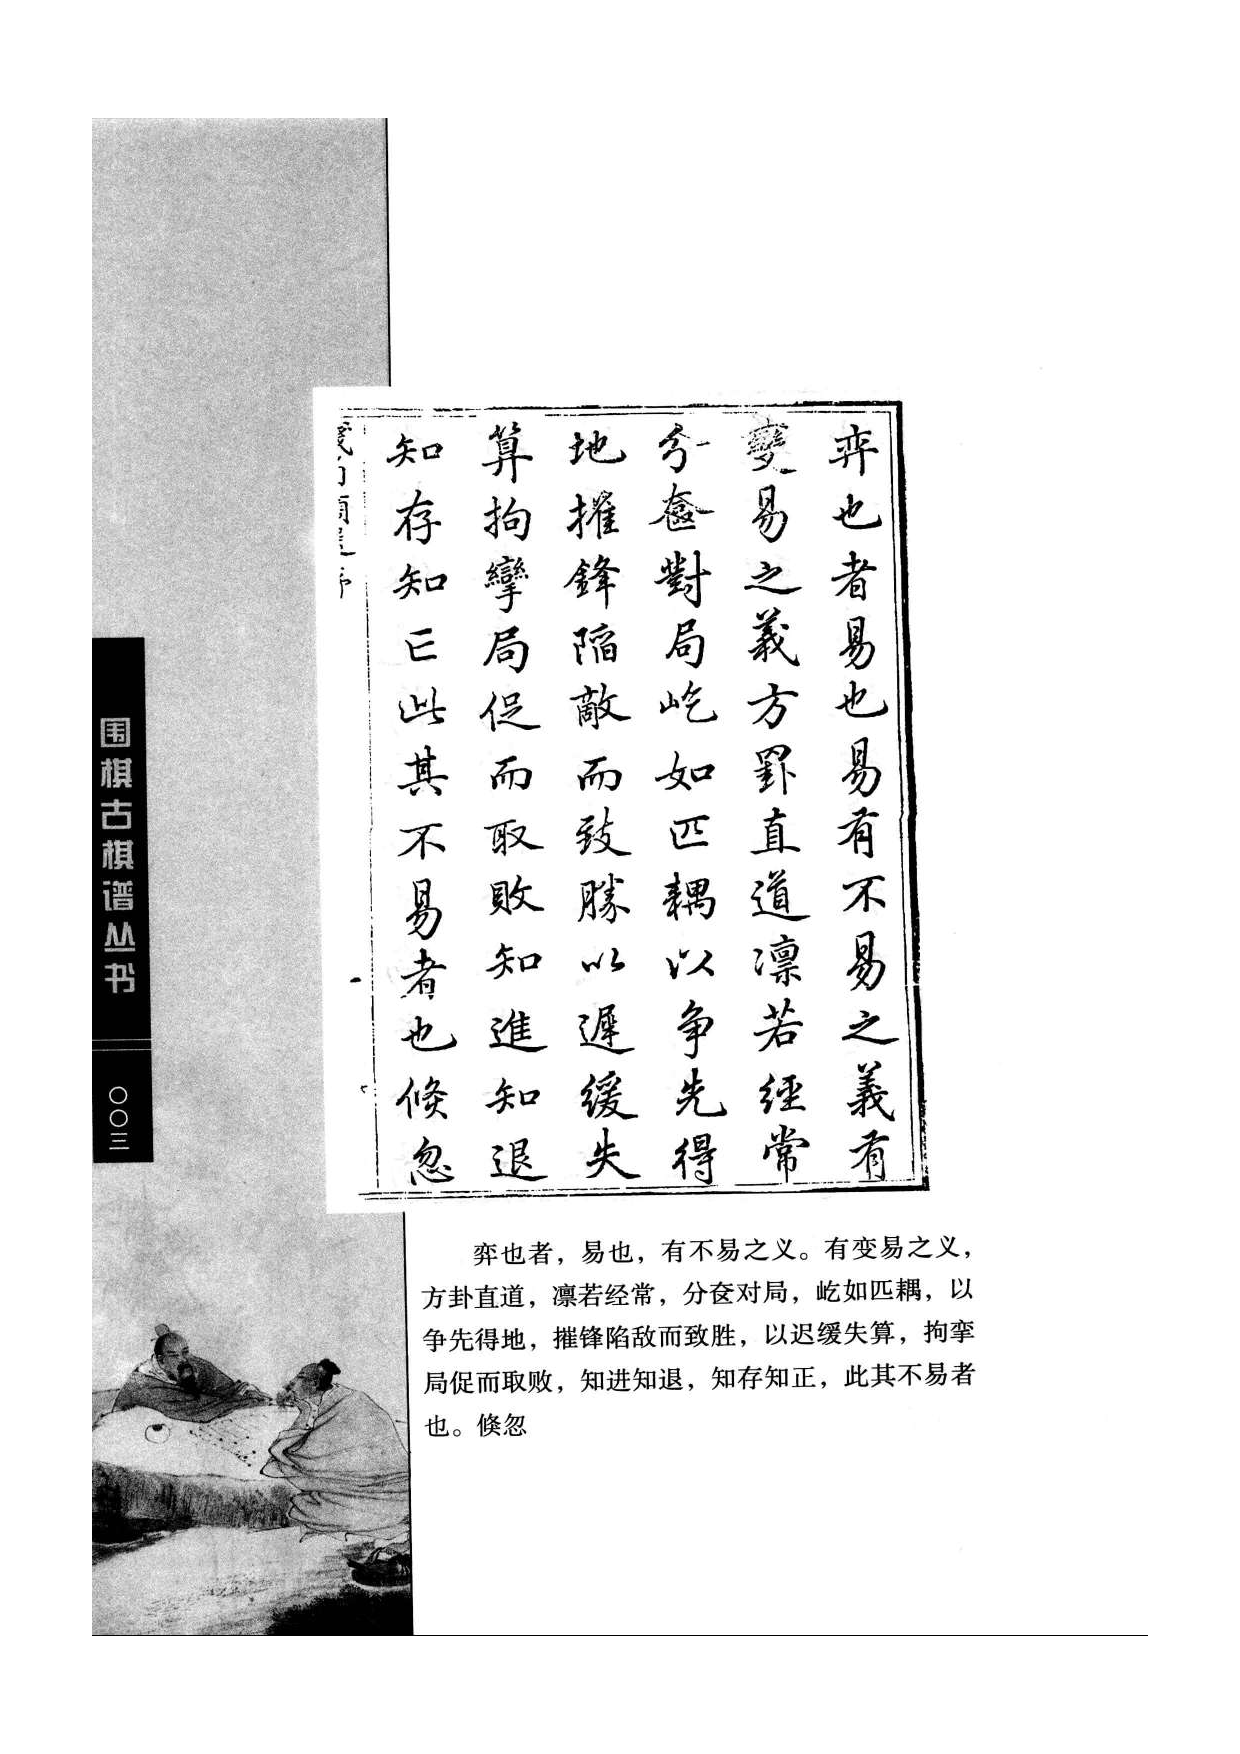 弈也者易也易有不易之義有
變易之義方罫直道凛若經常
分奩對局屹如匹耦以争先得
地摧鋒陷敵而致勝以遲緩失
算拘攣局促而取敗知進知退
知存知亡此其不易者也倐忽
围棋古棋谱丛书
〇〇三
弈也者，易也，有不易之义。有变易之义，
方卦直道，凛若经常，分奁对局，屹如匹耦，以
争先得地，摧锋陷敌而致胜，以迟缓失算，拘挛
局促而取败，知进知退，知存知正，此其不易者
也。倏忽